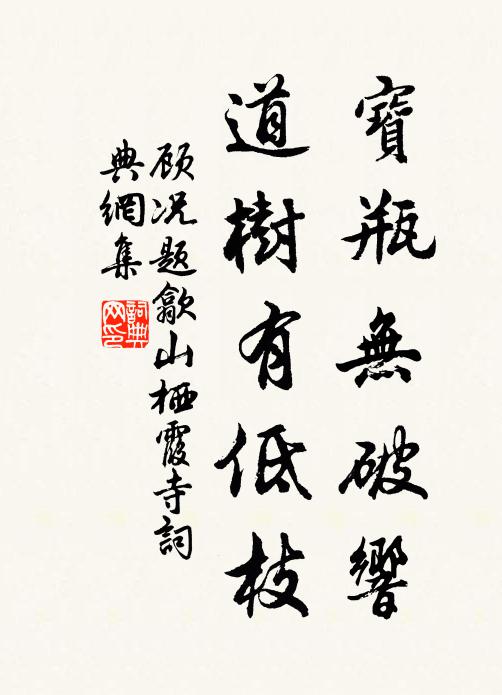 寶瓶無破響
道樹有低枝
顾况题歙山栖霞寺詞
典網集
詞典網印